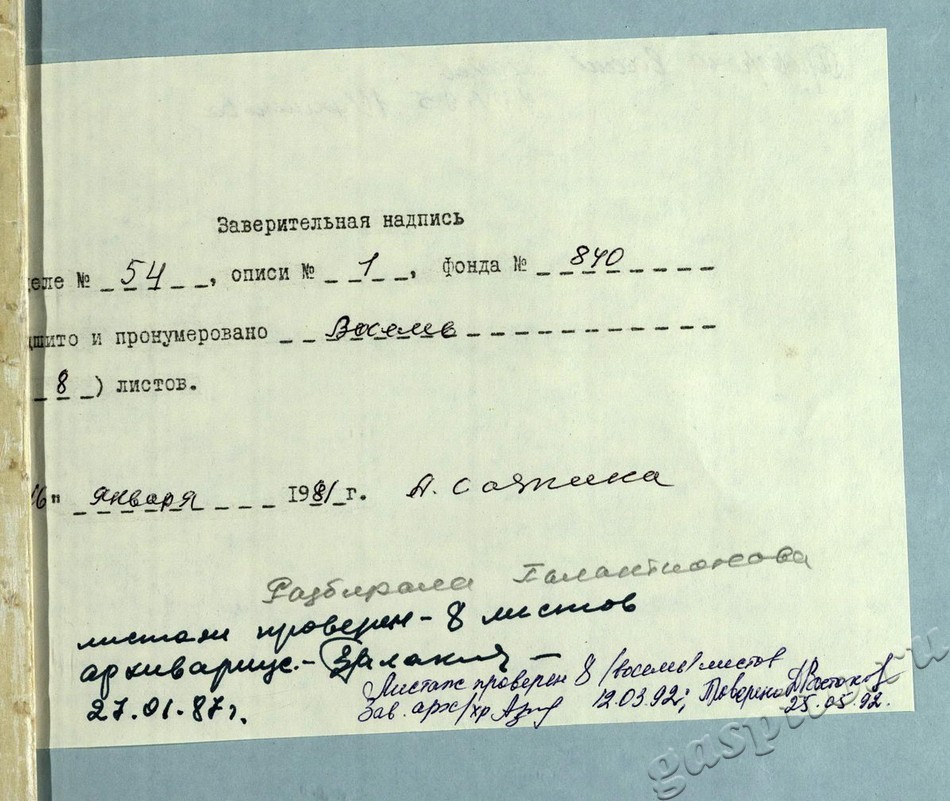 Заверительная надпись
деле № 54, описи № 1, фонда № 840
дшито и пронумеровано Восемь
8 ) листов.
16" января 1981 г. А. Сажина
Разбирала Галактионова
листаж проверен - 8 листов
архивариус. -
27.01.87г.
Листаж проверен 8 /восемь/ листов
Зав. арх/хр 12.03.92; Поверено
25.05.92.
gaspi